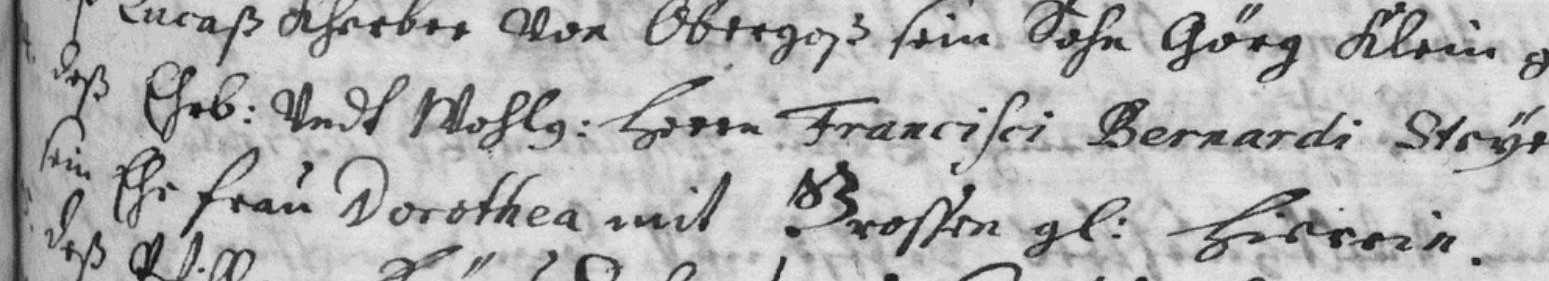 Lucaß Kherber Von Obergoß sein Sohn Görg Klein g
deß Ehrb: Vndt Wohlg: Herrn Francisci Bernardi Steyr
sein Ehe frau Dorothea mit Grossen gl: hierein.
deß